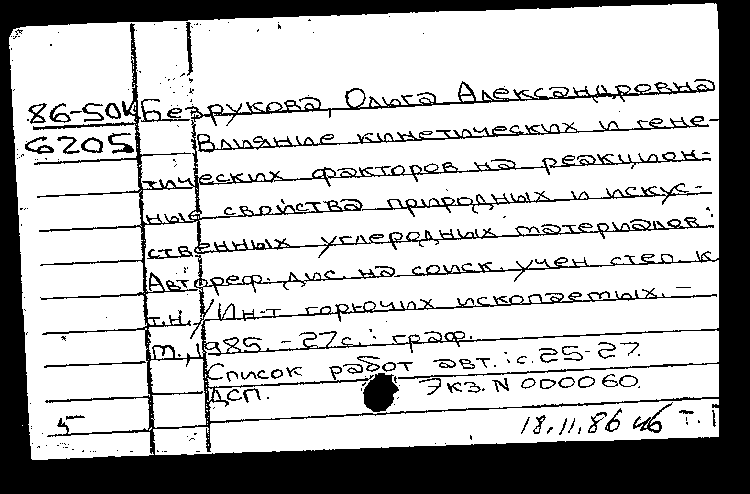 86-50К Безрукова, Ольга Александровна
6205 Влияние кинетических и гене-
тических факторов на реакцион-
ные свойства природных и искус-
ственных углеродных материалов:
Автореф. дис. на соиск. учен степ. к.
т.н. / Ин-т горючих ископаемых. –
М., 1985. – 27с.: граф.
Список работ авт.: с. 25-27.
ДСП. Экз. N 000060.
5 18.11.86 Т. Г